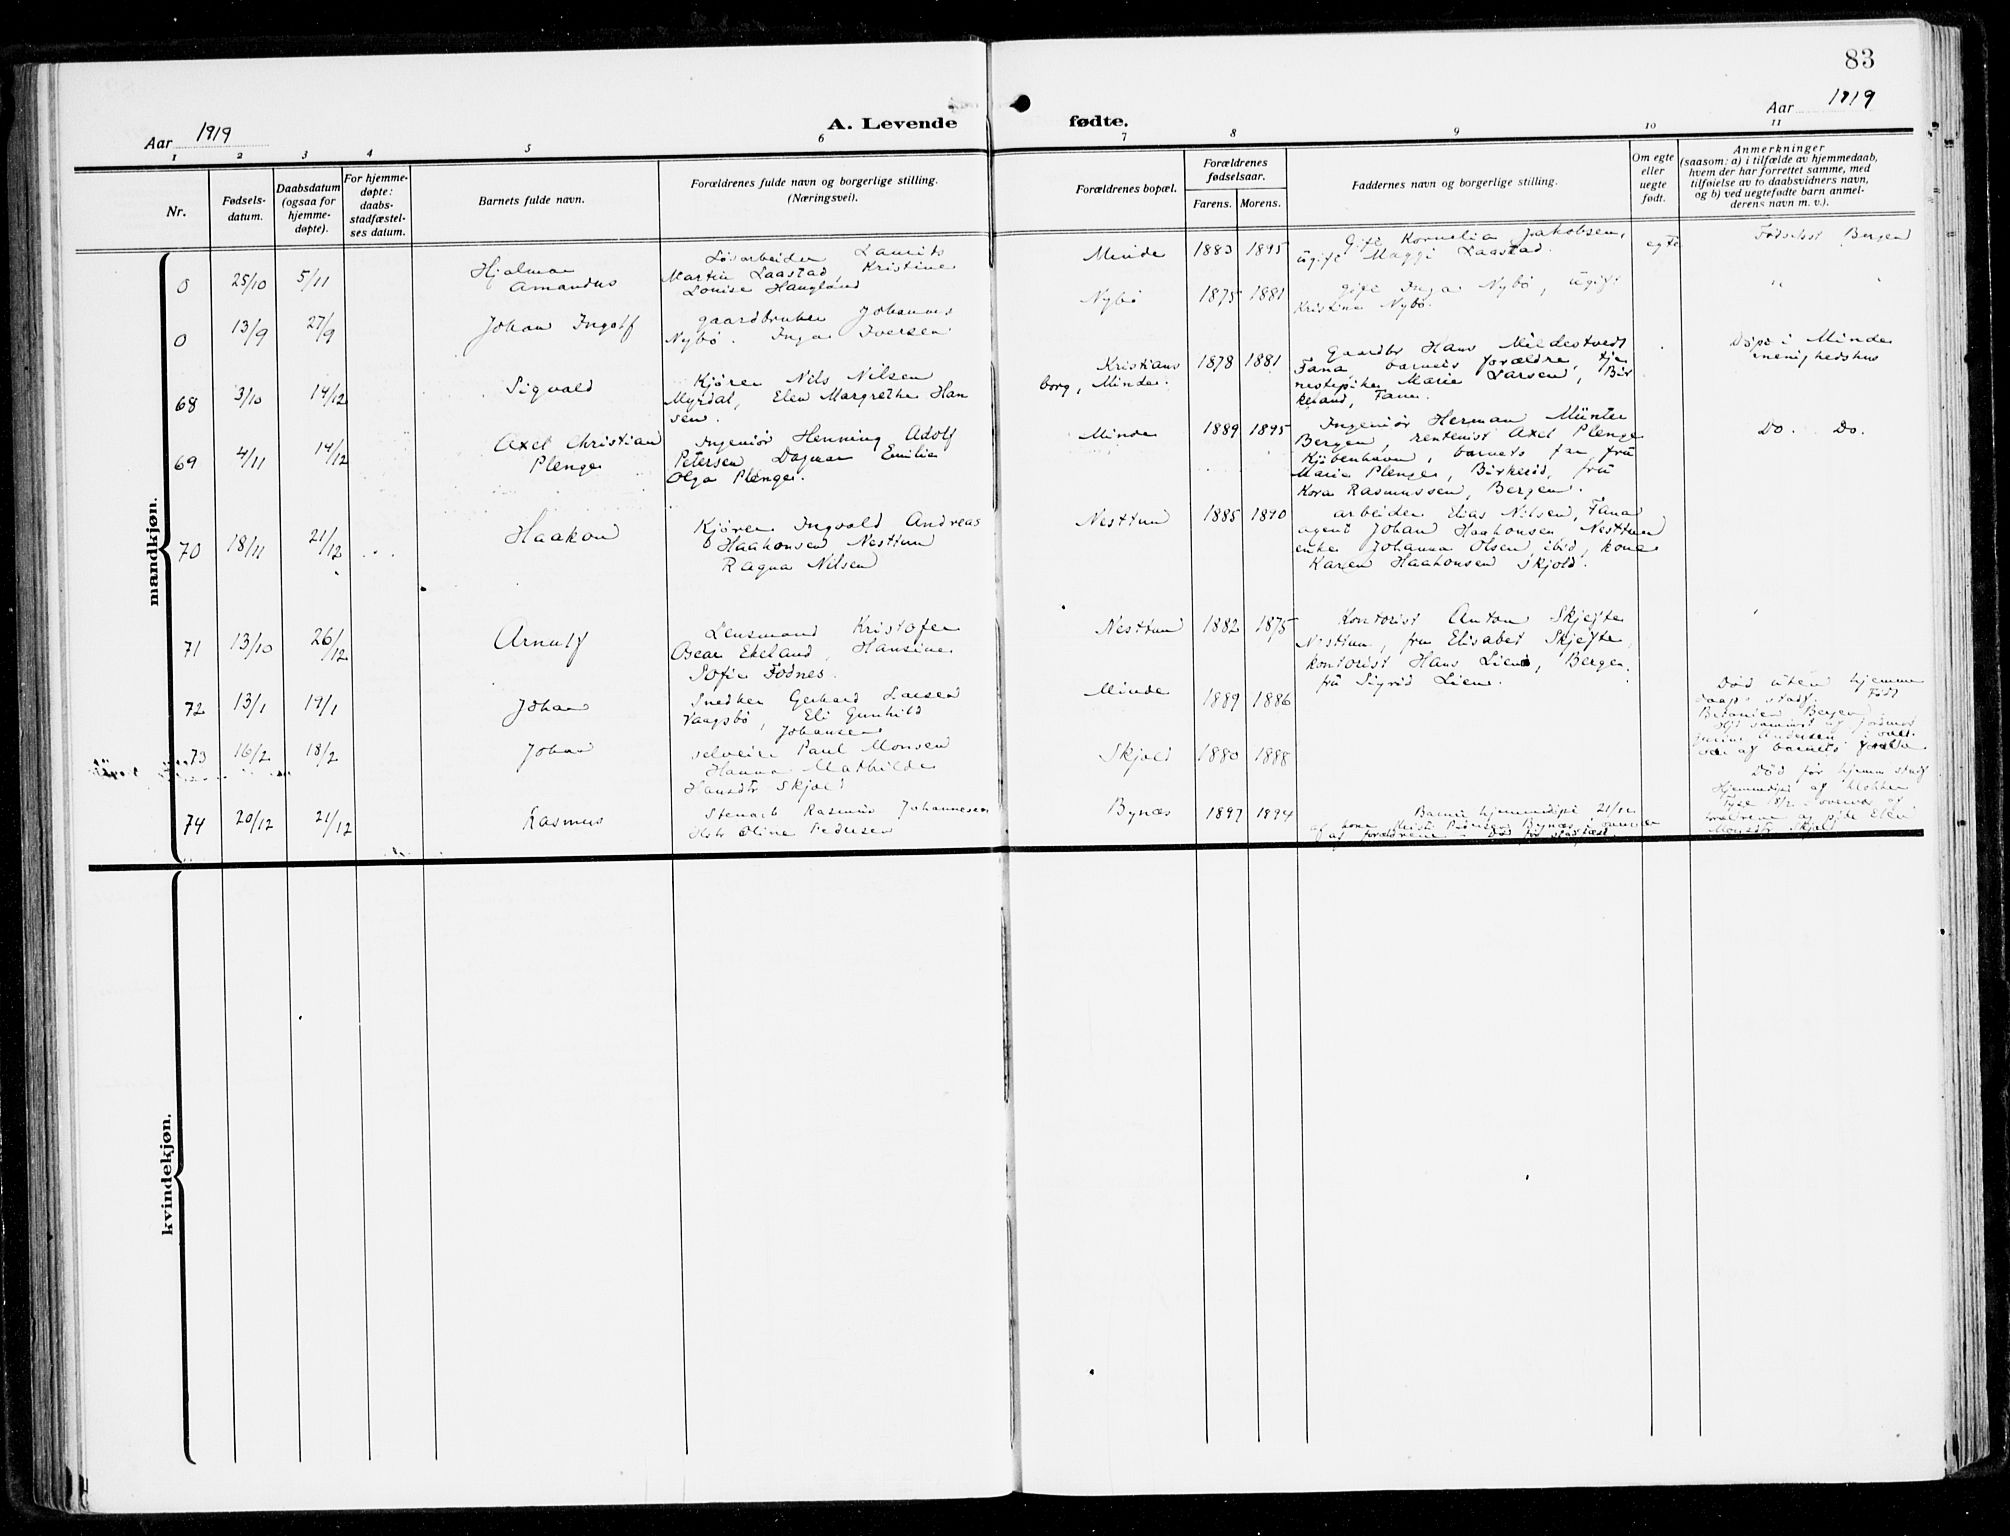 83
Aar 1919
A. Levende
fødte.
Aar 1919
1 2 3 4 5 6 7 8 9 10 11
Nr.
Fødsels-
datum.
Daabsdatum
(ogsaa for
hjemme-
døpte).
For hjemme-
døpte:
daabs-
stadfæstel-
ses datum.
Barnets fulde navn.
Forældrenes fulde navn og borgerlige stilling.
(Næringsvei).
Forældrenes bopæl.
Forældrenes
fødselsaar.
Farens. Morens.
Faddernes navn og borgerlige stilling.
Om egte
eller
uegte
født.
Anmerkninger
(saasom: a) i tilfælde av hjemmedaab,
hvem der har forrettet samme, med
tilføielse av to daabsvidners navn,
og b) ved uegtefødte barn anmel-
derens navn m. v.).
mandkjøn.
0 25/10 5/11
Hjalmar
Amandus
Løsarbeider Laurits
Martin Laastad, Kristine
Louise Haugland
Minde 1883 1895
Gift Kornelia Jakobsen,
ugift Maggi Laastad.
egte
Fødselsst Bergen
0 13/9 27/9
Johan Ingolf
gaardbruker Johannes
Nybø. Inga Iversen
Nybø 1875 1881
gift Inga Nybø, ugift
Kristine Nybø.
"
68 3/10 14/12
Sigvald
Kjører Nils Nilsen
Myrdal, Elen Margrethe Han
sen.
Kristians
borg, Minde. 1878 1881
Gaardbr Hans Mildestvedt
Fana barnets forældre, tje
nestepike Marie Larsen, Bir
keland, Fana.
Døpt i Minde
menighedshus
69 4/11 14/12
Axel Christian
Plenge
Ingeniør Henning Adolf
Petersen Dagmar Emilie
Olga Plenge.
Minde 1889 1895
Ingeniør Herman Münter
Bergen, rentenist Axel Plenge
Kjøbenhavn, barnets far fru
Marie Plenge, Birkerød, fru
Kora Rasmussen, Bergen.
Do. Do.
70 18/11 21/12
Haakon
Kjører Ingvald Andreas
Haakonsen Nesttun
Ragna Nilsen
Nesttun 1885 1890
arbeider Elias Nilsen, Fana
agent Johan Haakonsen Nesttun
enke Johanna Olsen, ibid, kone
Karen Haakonsen Skjold.
71 13/10 26/12
Arnulf
Lensmand Kristofer
Oscar Ekeland, Hansine
Sofie Fodnes.
Nesttun 1882 1875
Kontorist Anton Skjefte
Nesttun, fru Elisabet Skjefte,
kontorist Hans Lien, Bergen.
fru Sigrid Lien.
72 13/1 14/1
Johan
Snedker Gerhard Larsen
Vaagsbø, Eli Gunhild
Johansen
Minde 1889 1886
Død uten hjemme
daaps stadf. Født
Betanien Bergen
73 16/2 18/2
Johan
selveier Paul Monsen
Hanna Mathilde
Hansdtr Skjold
Skjold 1880 1888
Død før hjemm. stadf
Hjemmedøpt af klokker
forældrene og pike Elen
Monsdtr Skjold
74 20/12 21/12
Rasmus
Stenarb Rasmus Johannesen
Oline Pedersen
Bynæs 1897 1894
Barnet hjemmedøpt 21/12
af kone Pedersen Bynæs
af forældrene. Død før stadfæst.
kvindekjøn.